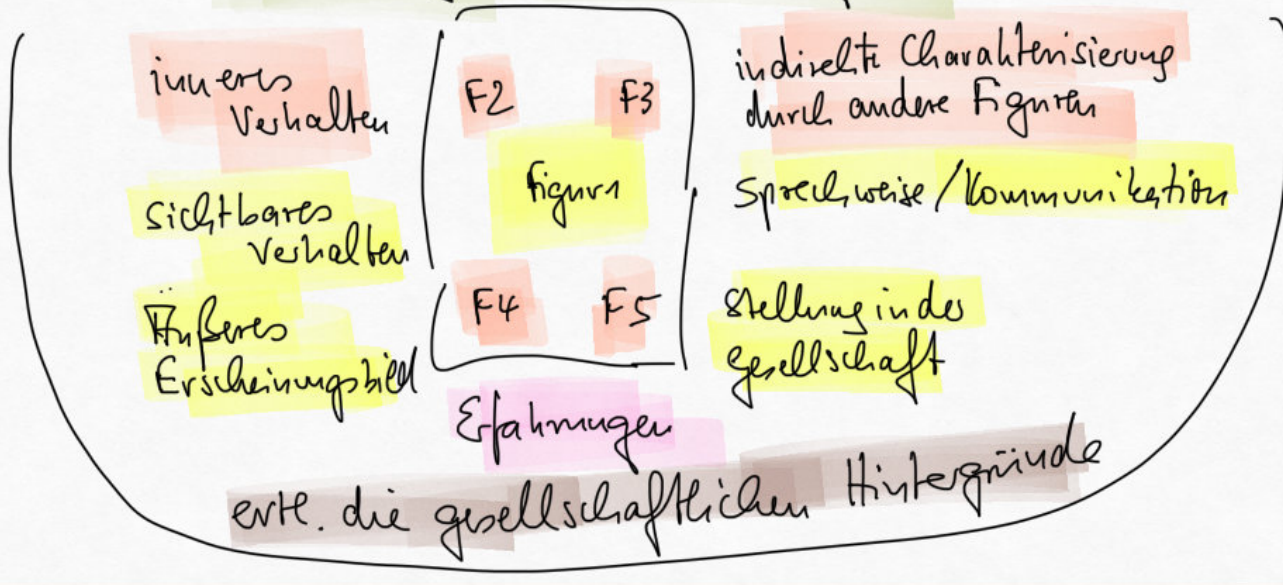 inneres
Verhalten
sichtbares
Verhalten
Äußeres
Erscheinungsbild
F2 F3
Figur 1
F4 F5
Erfahrungen
indirekte Charakterisierung
durch andere Figuren
Sprechweise / Kommunikation
Stellung in der
Gesellschaft
evtl. die gesellschaftlichen Hintergründe